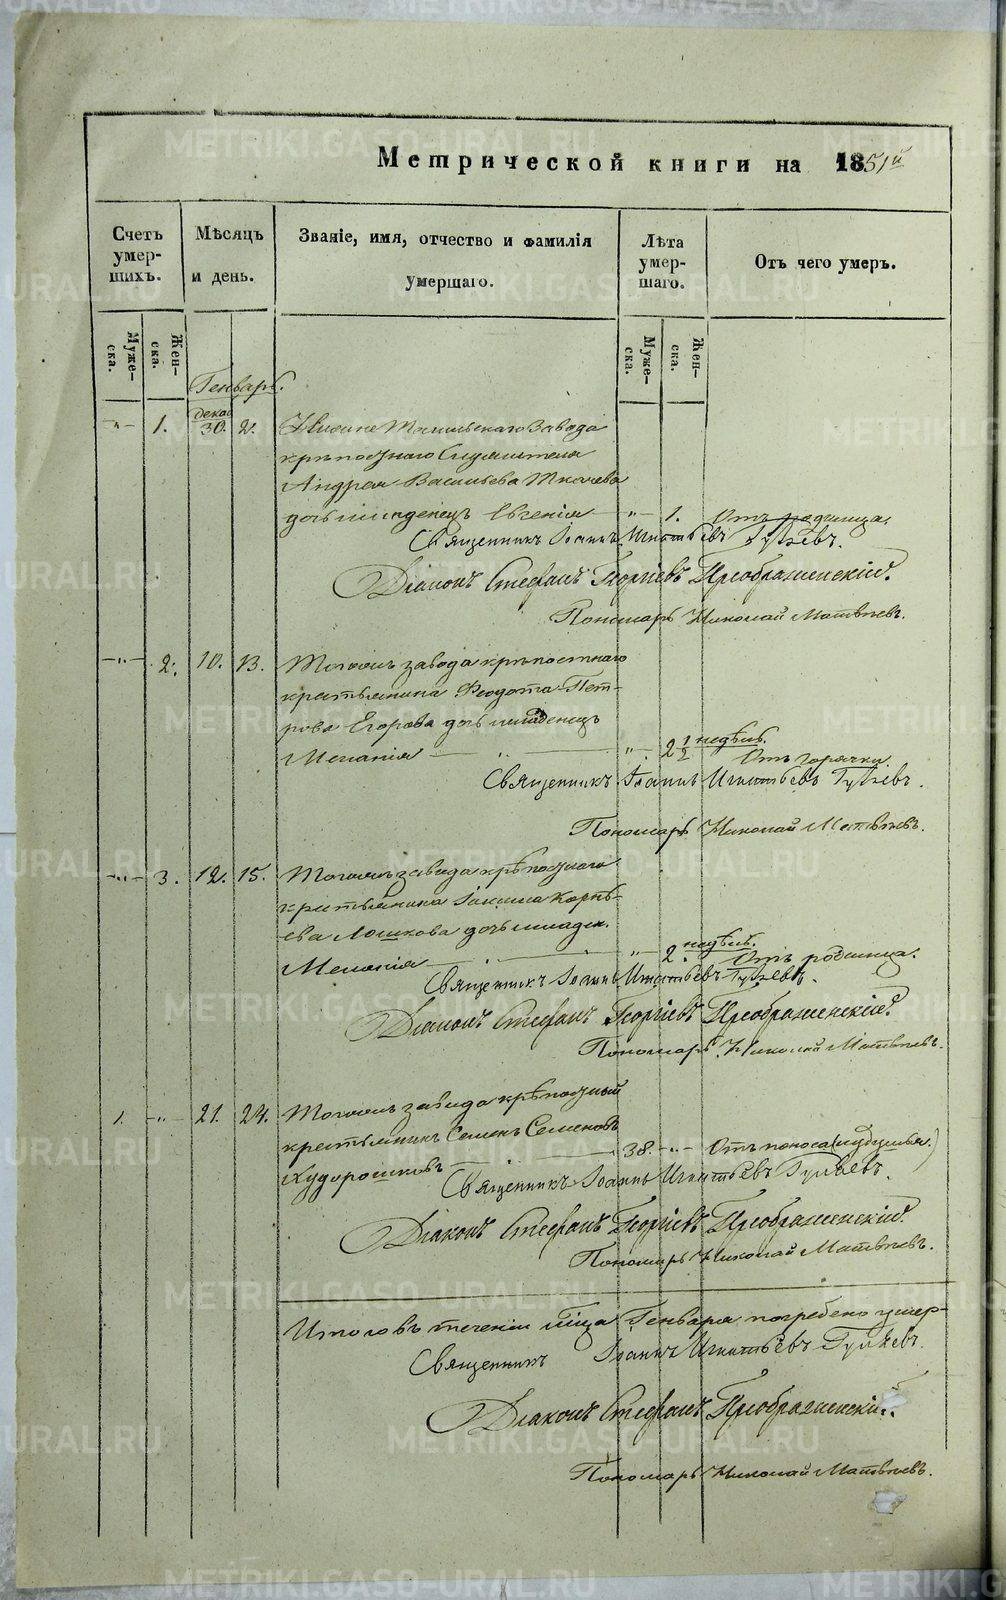 Метрической книги на 1851й
Счетъ умер-шихъ.
Мѣсяцъ и день.
Званіе, имя, отчество и фамилія умершаго.
Лѣта умер-шаго.
Отъ чего умеръ.
Муже-ска.
Жен-ска.
Муже-ска.
Жен-ска.
Генварь.
декаб
-"- 1. 30. 2. Нижне Тагильскаго Завода
крѣпостнаго Служителя
Андрея Васильева Ткачева
дочь младенецъ Евгенія -"- 1. Отъ родимца.
Священникъ Іоаннъ Игнатьевъ
Діаконъ Стефанъ Георгіевъ Преображенскій.
Пономарь Николай Матвѣевъ.
-"- 2. 10. 13. Тогожъ завода крѣпостнаго
крестьянина Феодота Пет-
рова Егорова дочь младенецъ
Меланія " -"- 2 1/2 недѣль. Отъ горячки.
Священникъ Іоаннъ Игнатьевъ
Пономарь Николай Матвѣевъ.
-"- 3. 12. 15. Тогожъ завода крѣпостнаго
крестьянина Іакима Карпѣ-
ева Лошкова дочь младен.
Меланія " -"- 2. недѣль. Отъ родимца.
Священникъ Іоаннъ Игнатьевъ
Діаконъ Стефанъ Георгіевъ Преображенскій.
Пономарь Николай Матвѣевъ.
1. -"- 21. 24. Тогожъ завода крѣпостный
крестьянинъ Семенъ Семеновъ
Худорошковъ 38. -"- Отъ поноса
Священникъ Іоаннъ Игнатьевъ
Діаконъ Стефанъ Георгіевъ Преображенскій.
Пономарь Николай Матвѣевъ.
Итого въ теченіи мѣсяца Генваря погребено умер-
Священникъ Іоаннъ Игнатьевъ
Діаконъ Стефанъ Преображенскій.
Пономарь Николай Матвѣевъ.
METRIKI.GASO-URAL.RU